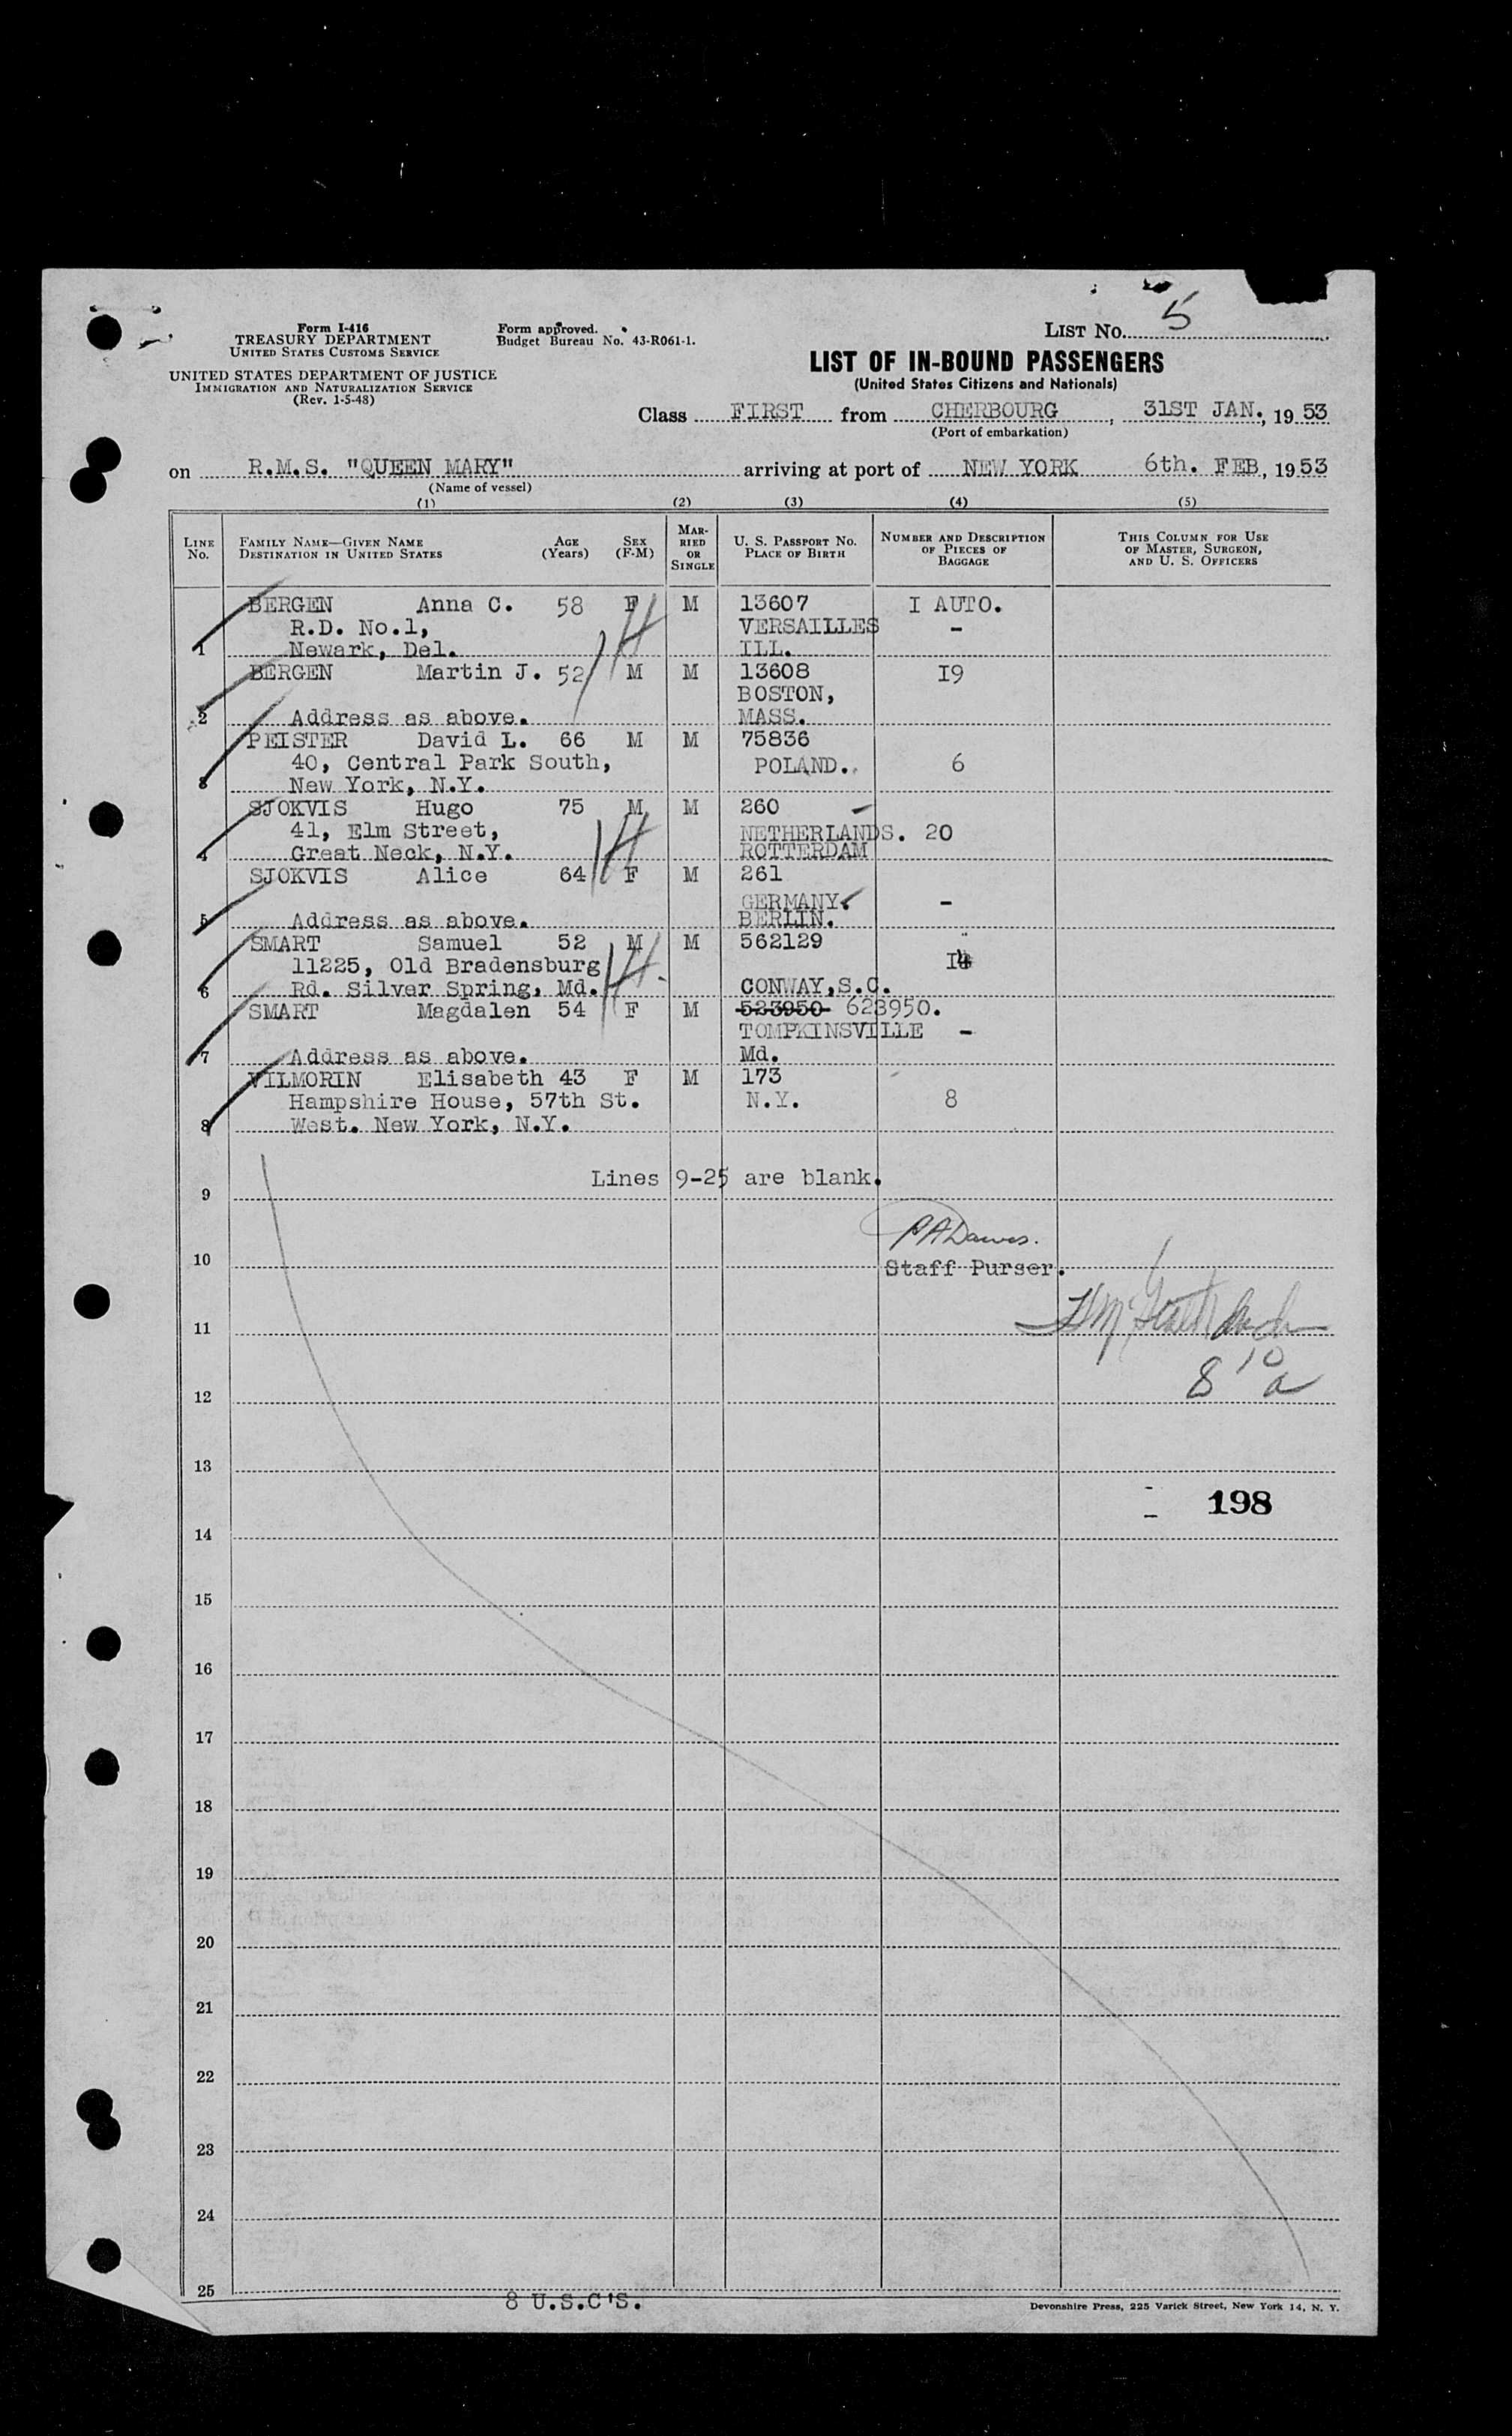 Form I-416
TREASURY DEPARTMENT
UNITED STATES CUSTOMS SERVICE
UNITED STATES DEPARTMENT OF JUSTICE
IMMIGRATION AND NATURALIZATION SERVICE
(Rev. 1-5-48)
Form approved.
Budget Bureau No. 43-R061-1.
LIST NO. 5
LIST OF IN-BOUND PASSENGERS
(United States Citizens and Nationals)
Class FIRST from CHERBOURG, 31ST JAN., 1953
(Port of embarkation)
on R.M.S. "QUEEN MARY" arriving at port of NEW YORK 6th. FEB, 1953
(Name of vessel)
(1) (2) (3) (4) (5)
LINE NO. FAMILY NAME—GIVEN NAME DESTINATION IN UNITED STATES AGE (Years) SEX (F-M) MARRIED OR SINGLE U. S. PASSPORT NO. PLACE OF BIRTH NUMBER AND DESCRIPTION OF PIECES OF BAGGAGE THIS COLUMN FOR USE OF MASTER, SURGEON, AND U. S. OFFICERS
BERGEN Anna C. 58 F M 13607 I AUTO.
R.D. No.1, VERSAILLES -
1 Newark, Del. ILL.
BERGEN Martin J. 52 M M 13608 I9
BOSTON,
2 Address as above. MASS.
PEISTER David L. 66 M M 75836
40, Central Park South, POLAND. 6
3 New York, N.Y.
SJOKVIS Hugo 75 M M 260
41, Elm Street, NETHERLANDS. 20
4 Great Neck, N.Y. ROTTERDAM
SJOKVIS Alice 64 F M 261
GERMANY. -
5 Address as above. BERLIN.
SMART Samuel 52 M M 562129
11225, Old Bradensburg I4
6 Rd. Silver Spring, Md. CONWAY,S.C.
SMART Magdalen 54 F M 523950 623950.
TOMPKINSVILLE -
7 Address as above. Md.
VILMORIN Elisabeth 43 F M 173
Hampshire House, 57th St. N.Y. 8
8 West. New York, N.Y.
Lines 9-25 are blank.
9
10
Staff Purser.
11
8 10 a
12
13
198
14
15
16
17
18
19
20
21
22
23
24
25
8 U.S.C'S.
Devonshire Press, 225 Varick Street, New York 14, N. Y.